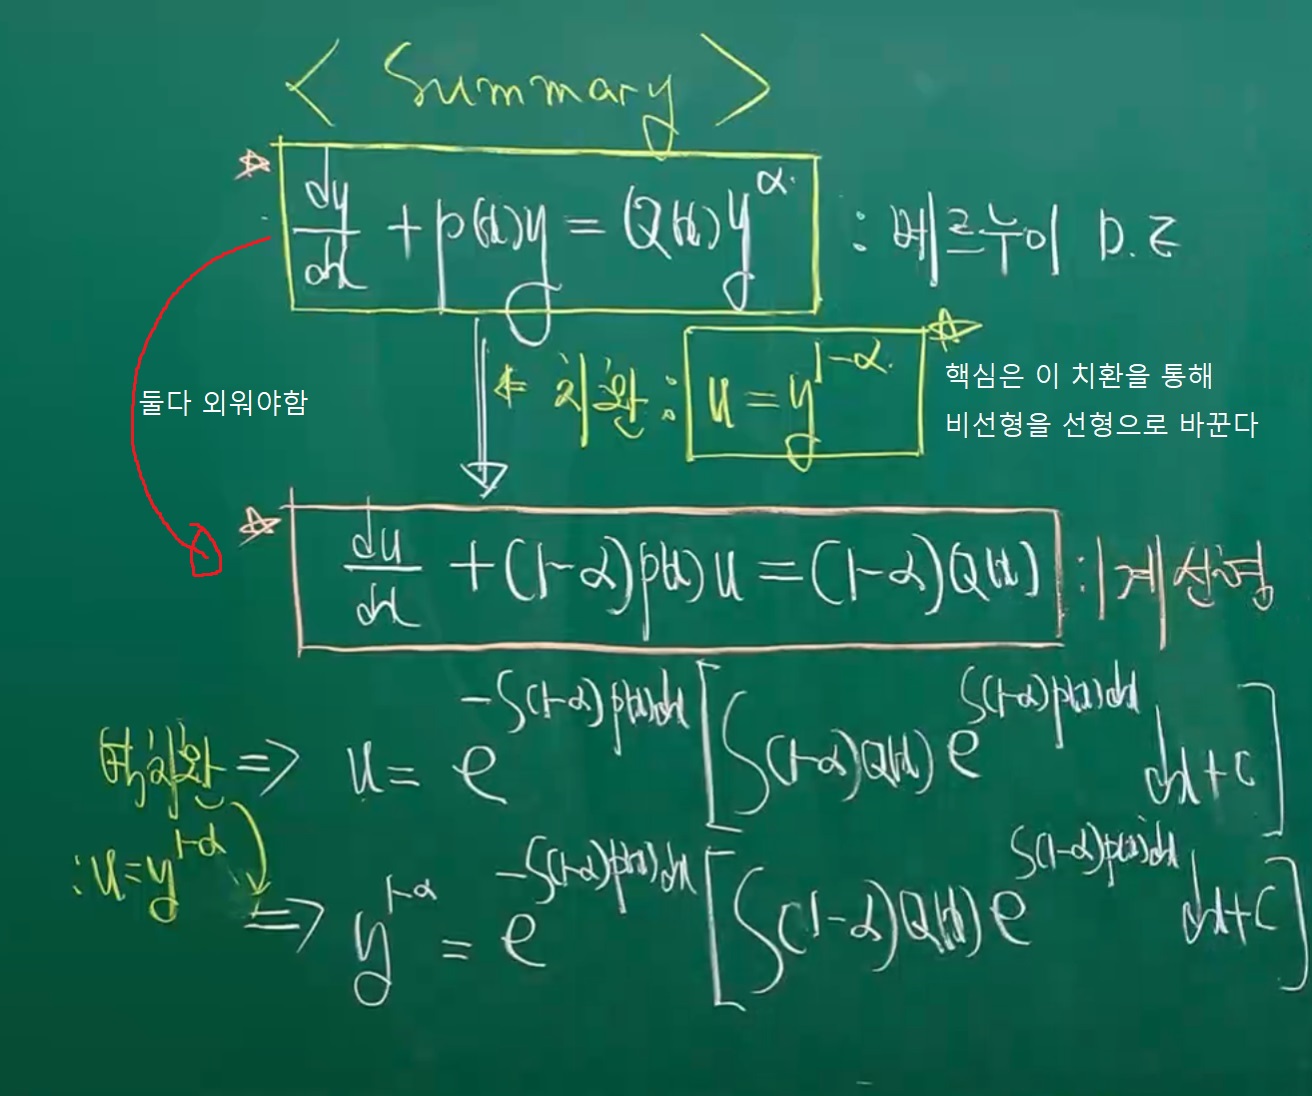 < Summary >
dy/dx + p(x)y = Q(x)y^α : 베르누이 D.E
← 치환 : u = y^(1-α)
핵심은 이 치환을 통해
비선형을 선형으로 바꾼다
둘다 외워야함
du/dx + (1-α)p(x)u = (1-α)Q(x) : 1계 선형
역치환 => u = e^(-∫(1-α)p(x)dx) [∫(1-α)Q(x) e^(∫(1-α)p(x)dx) dx + C]
: u = y^(1-α)
=> y^(1-α) = e^(-∫(1-α)p(x)dx) [∫(1-α)Q(x) e^(∫(1-α)p(x)dx) dx + C]